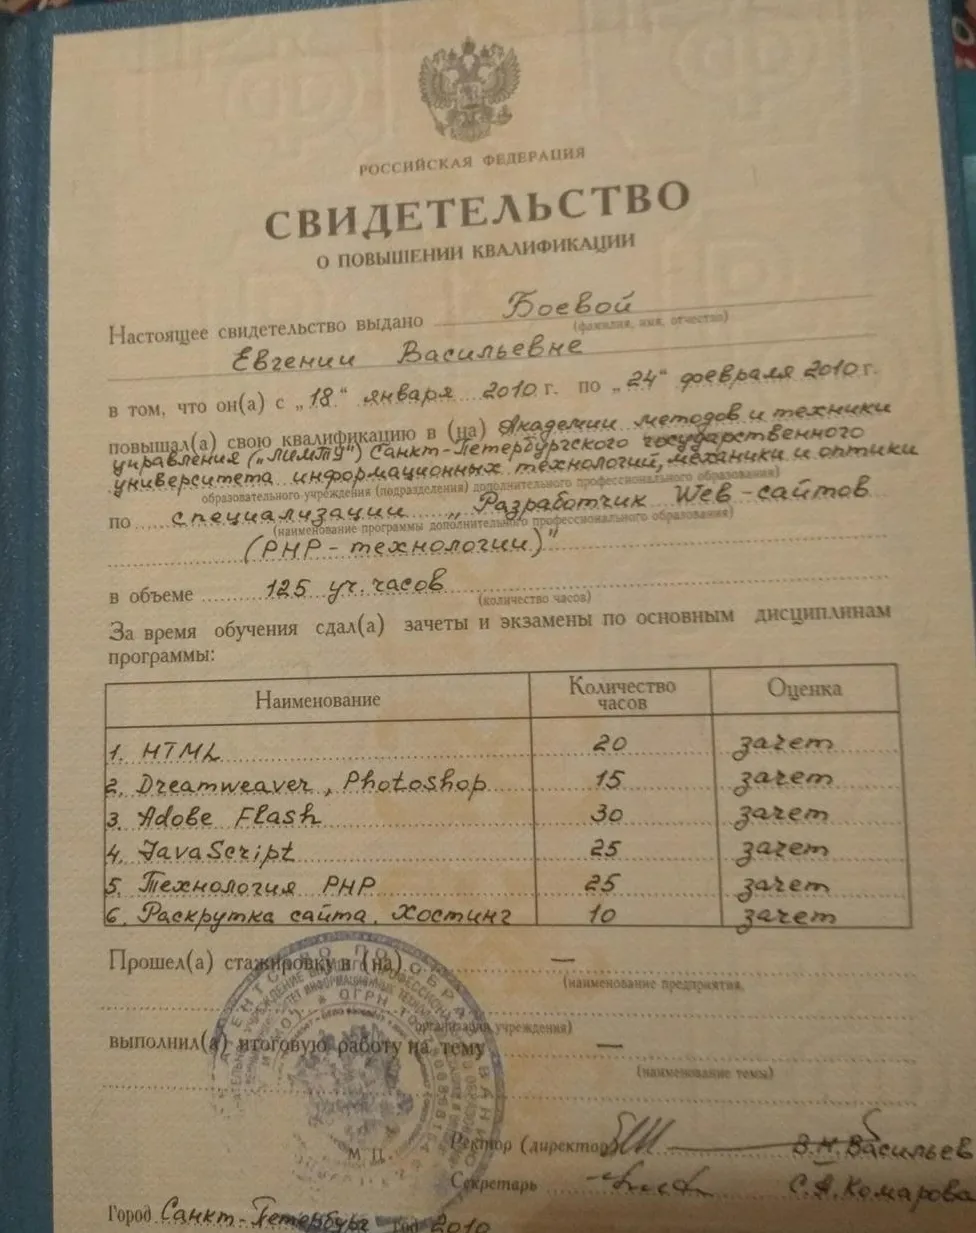 РОССИЙСКАЯ ФЕДЕРАЦИЯ
СВИДЕТЕЛЬСТВО
О ПОВЫШЕНИИ КВАЛИФИКАЦИИ
Настоящее свидетельство выдано Боевой
(фамилия, имя, отчество)
Евгении Васильевне
в том, что он(а) с „18“ января 2010 г. по „24“ февраля 2010 г.
повышал(а) свою квалификацию в (на) Академии методов и техники
управления („ЛИМТУ“) Санкт-Петербургского государственного
университета информационных технологий, механики и оптики
образовательного учреждения (подразделения) дополнительного профессионального образования)
по специализации „Разработчик Web-сайтов
(наименование программы дополнительного профессионального образования)
(PHP-технологии)“
в объеме 125 уч. часов
(количество часов)
За время обучения сдал(а) зачеты и экзамены по основным дисциплинам
программы:
Наименование Количество часов Оценка
1. HTML 20 зачет
2. Dreamweaver, Photoshop 15 зачет
3. Adobe Flash 30 зачет
4. JavaScript 25 зачет
5. Технология PHP 25 зачет
6. Раскрутка сайта. Хостинг 10 зачет
Прошел(а) стажировку в (на) —
(наименование предприятия,
организации, учреждения)
выполнил(а) итоговую работу на тему —
(наименование темы)
М.П.
Ректор (директор) В.Н. Васильев
Секретарь С.А. Комарова
Город Санкт-Петербург год 2010